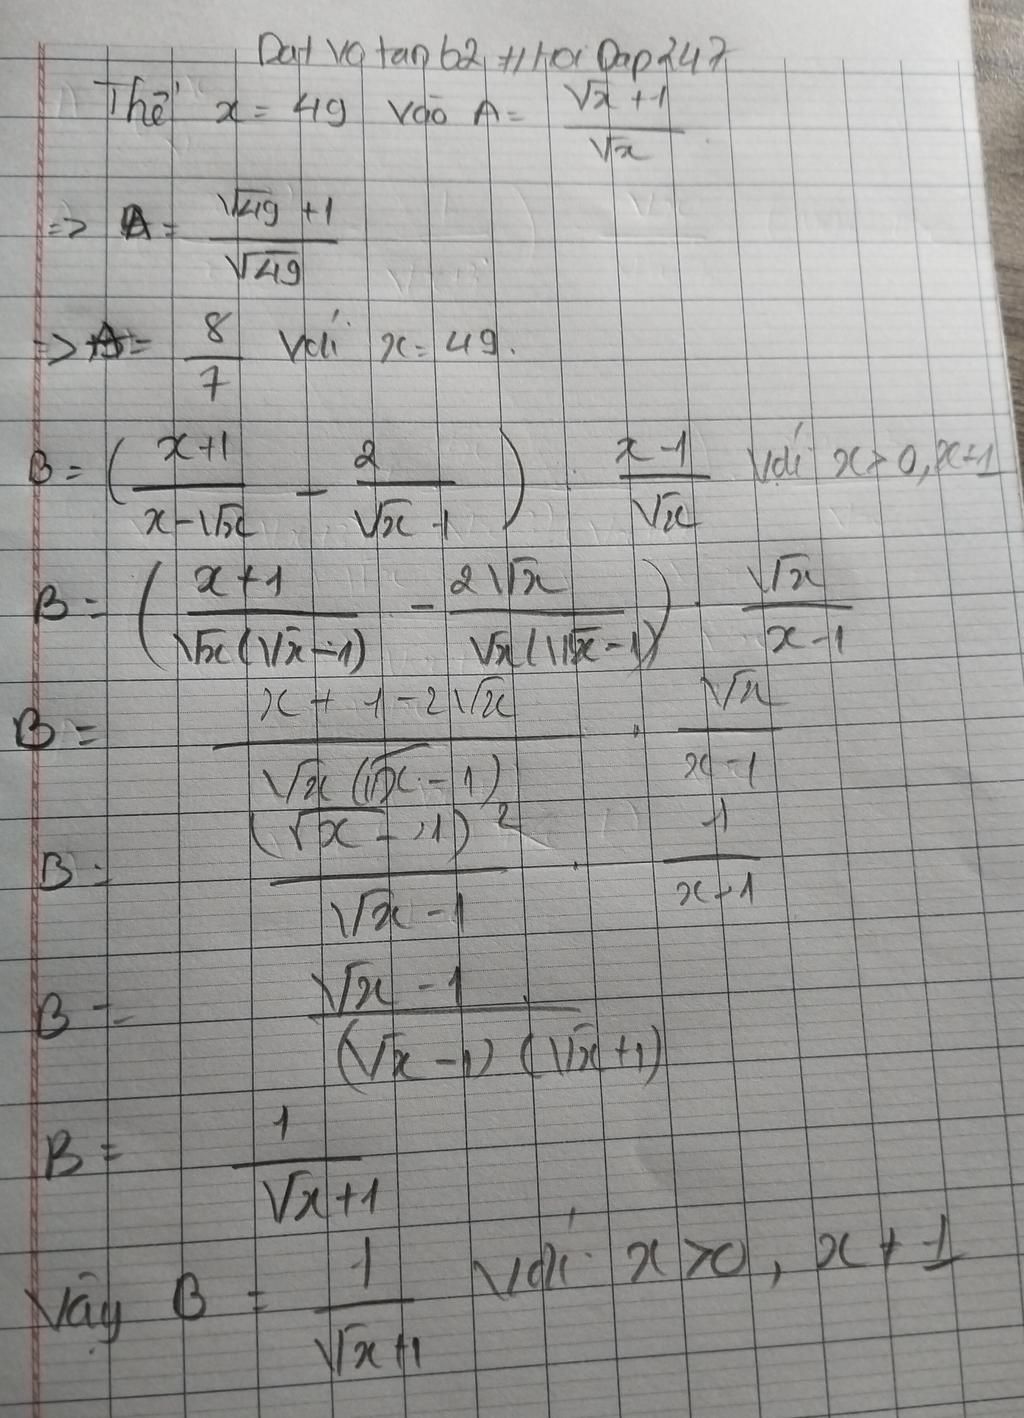 Datvotanb2 #HoiDap247
Thế x = 49 vào A = (√x + 1)/√x
=> A = (√49 + 1)/√49
=> A = 8/7 với x = 49.
B = ((x+1)/(x-√x) - 2/(√x-1)) : (x-1)/√x với x > 0, x ≠ 1
B = ((x+1)/(√x(√x-1)) - 2√x/(√x(√x-1))) . √x/(x-1)
B = (x+1-2√x)/(√x(√x-1)) . √x/(x-1)
B = (√x-1)²/(√x-1) . 1/(x-1)
B = (√x-1)/((√x-1)(√x+1))
B = 1/(√x+1)
Vậy B = 1/(√x+1) với x > 0, x ≠ 1